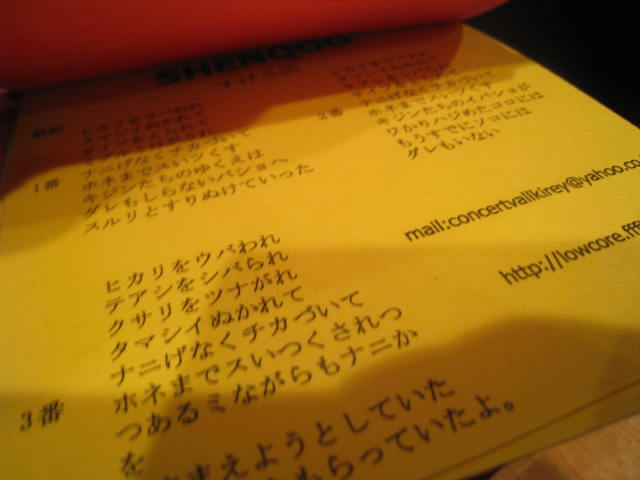 SHENQOO
1番
ヒカリをウバわれ
ナニげなくチカづいて
ホネまでスいツくす
キジンたちのゆくえは
ダレもしらないバショへ
スルリとすりぬけていった
2番
ホネまでスいツくす
キジンたちのイバショが
ワかりハジめたコロには
もうすでにソコには
ダレもいない
mail:concertvallkirey@yahoo.co
http://lowcore.ff
3番
ヒカリをウバわれ
テアシをシバられ
クサリをツナがれ
タマシイぬかれて
ナニげなくチカづいて
ホネまでスいつくされつ
つあるミながらもナニか
を
まえようとしていた
もらっていたよ。